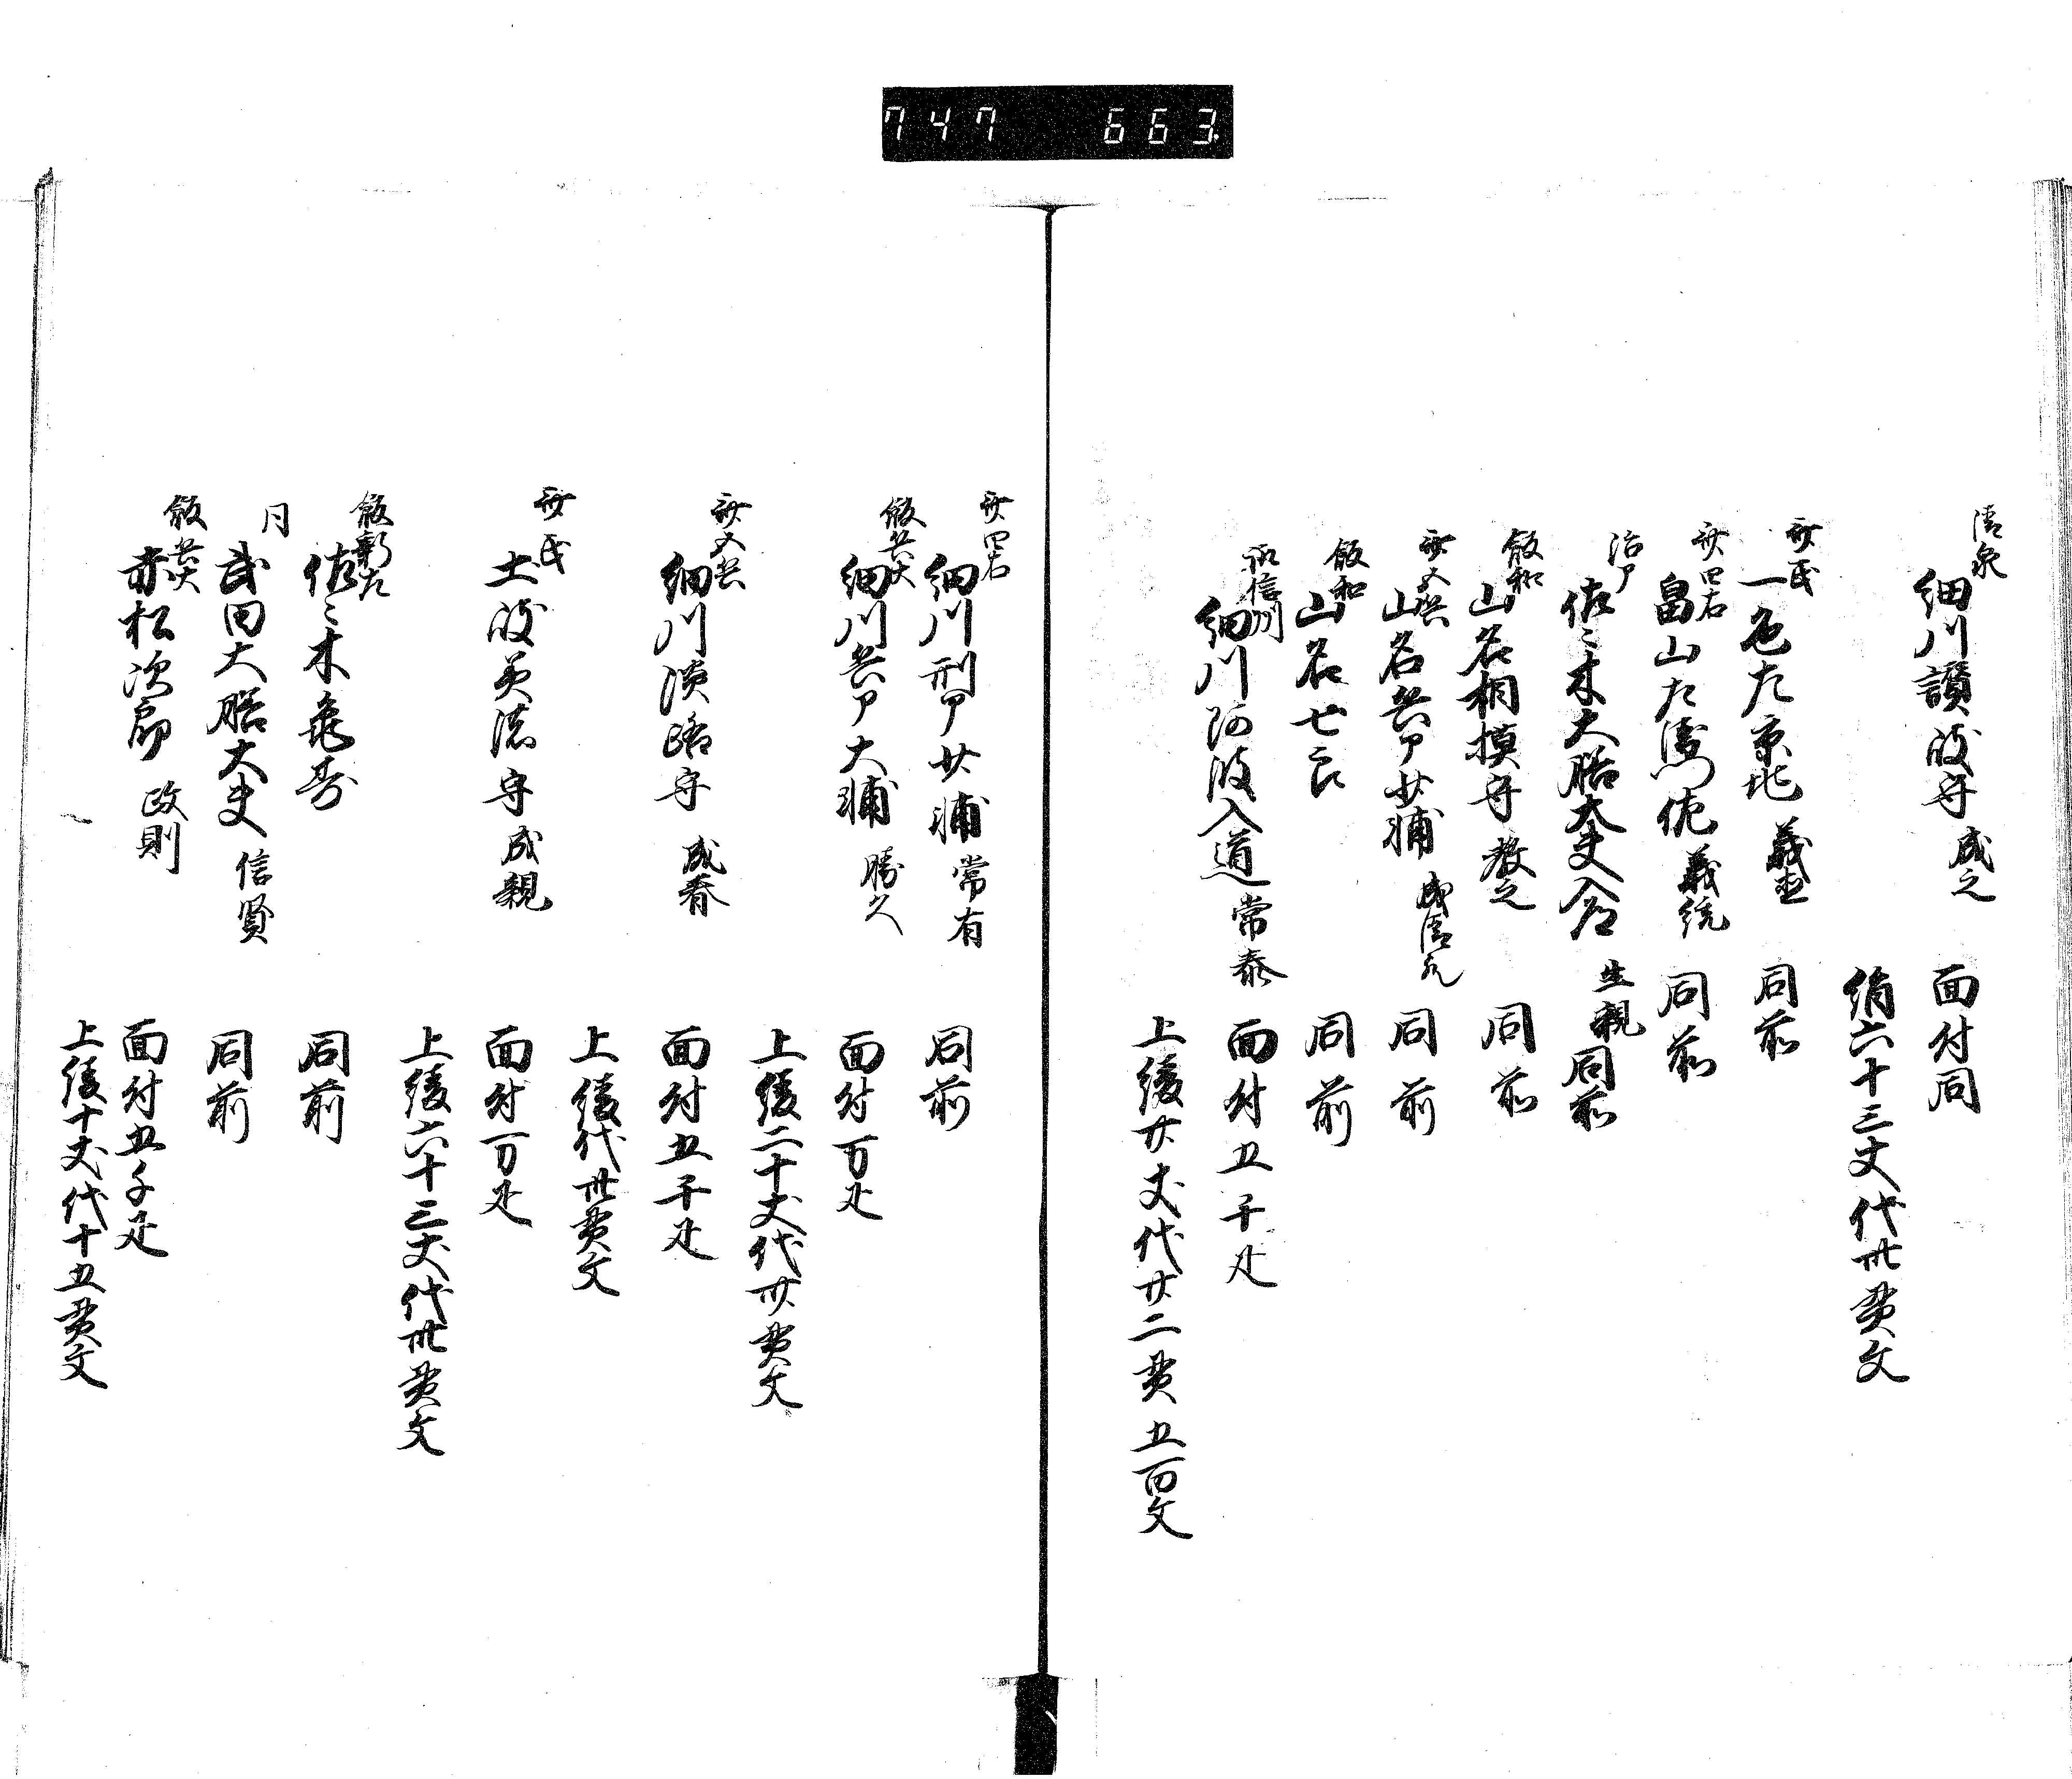 747 663
清泉
細川讃岐守 成之 面付同
絹六十三丈代卅貫文
斎民
一色左京兆 義直 同前
斎四右
畠山左衛門佐 義統 同前
治ア
佐々木大膳大夫入道 生観 同前
飯和
山名相摸守 教之 同前
斎五兵
山名兵ア少輔 成清 同前
飯和
山名七郎 同前
細川阿波入道 常泰 面付五千疋
上綾廿丈代廿二貫五百文
斎四右
細川刑ア少輔 常有 同前
飯兵大
細川兵ア大輔 勝久 面付万疋
上綾二十丈代廿貫文
斎五兵
細川淡路守 成春 面付五千疋
上綾代卅貫文
斎民
土岐美濃守 成親 面付万疋
上綾六十三丈代卅貫文
飯新左
佐々木亀寿 同前
同
武田大膳大夫 信賢 同前
飯兵大
赤松次郎 政則 面付五千疋
上綾十丈代十五貫文